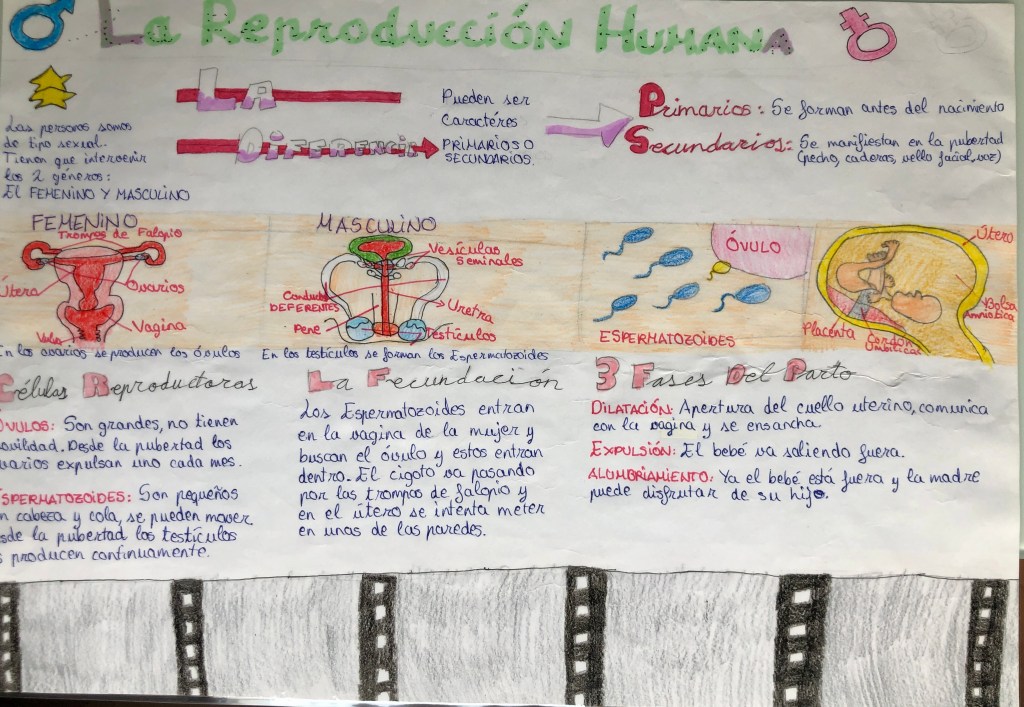 La Reproducción Humana
Las personas somos
de tipo sexual.
Tienen que intervenir
los 2 géneros:
El FEMENINO Y MASCULINO
LA
DIFERENCIA
Pueden ser
Caractéres
PRIMARIOS O
SECUNDARIOS.
Primarios: Se forman antes del nacimiento
Secundarios: Se manifiestan en la pubertad
(pecho, caderas, vello facial, voz)
FEMENINO
Trompas de Falopio
Útero
Ovarios
Vulva
Vagina
En los ovarios se producen los óvulos
MASCULINO
Vesículas
Seminales
Conductos
DEFERENTES
Uretra
Pene
Testículos
En los testículos se forman los Espermatozoides
ÓVULO
ESPERMATOZOIDES
Útero
Bolsa
Amniótica
Placenta
Cordón
Umbilical
Células Reproductoras
ÓVULOS: Son grandes, no tienen
movilidad. Desde la pubertad los
ovarios expulsan uno cada mes.
ESPERMATOZOIDES: Son pequeños
con cabeza y cola, se pueden mover.
Desde la pubertad los testículos
los producen continuamente.
La Fecundación
Los Espermatozoides entran
en la vagina de la mujer y
buscan el óvulo y estos entran
dentro. El cigoto va pasando
por las trompas de falopio y
en el útero se intenta meter
en unas de las paredes.
3 Fases Del Parto
DILATACIÓN: Apertura del cuello uterino, comunica
con la vagina y se ensancha.
EXPULSIÓN: El bebé va saliendo fuera.
ALUMBRIAMIENTO: Ya el bebé está fuera y la madre
puede disfrutar de su hijo.